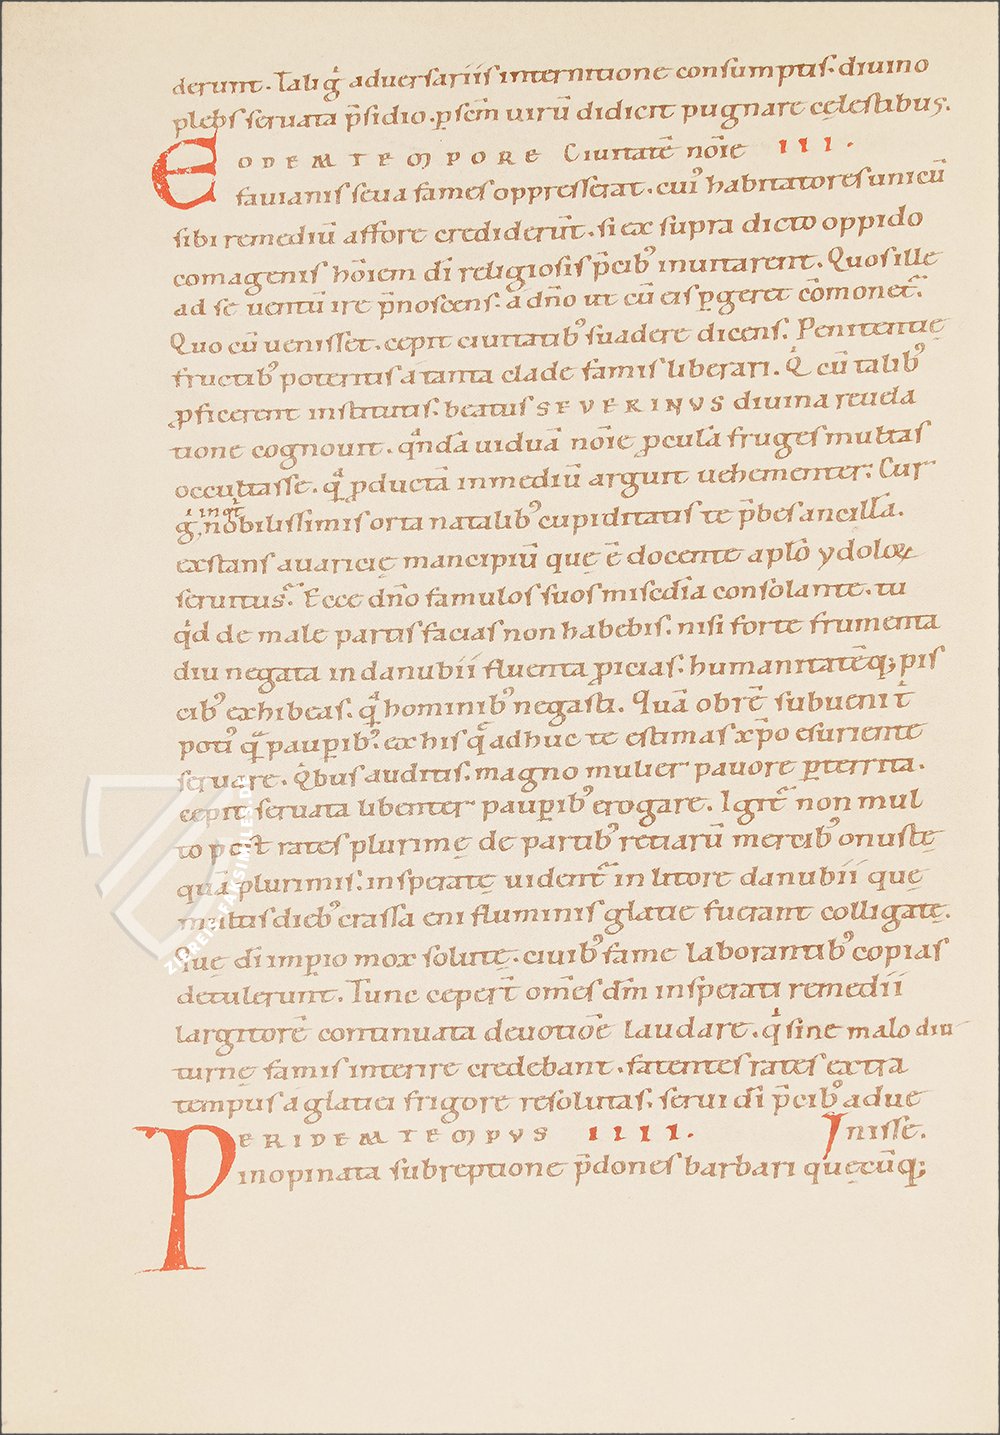 derunt. Taliq̇ adversariis internitione consumptis. divino
plebs servata p̄sidio. p sc̄m virū didicit pugnare cęlestibus.
EODEM TEMPORE Civitatē noīe III.
favianis seva fames oppresserat. cui᾽ habitatores unicū
sibi remediū affore crediderūt. si ex supra dicto oppido
comagenis hōiem dī religiosis p̄cib᾽ invitarent. Quos ille
ad se ventū ire p̄noscens. a dn̄o ut cū eis pgeret cōmonet᾽.
Quo cū venisset. cepit civitatib᾽ suadere dicens. Penitentię
fructib᾽ poteritis a tanta clade famis liberari. Q̇ cū talib᾽
ꝓficerent institutis. beatus SEVERINVS divina revela
tione cognovit. qͣndā viduā noīe ꝓculā fruges multas
occultasse. qͣ ꝓductā in mediū arguit vehementer. Cur
inqt
q̇, nobilissimis orta natalib᾽ cupiditatis te p̄bes ancillā.
exstans avaricię mancipiū quę ē docente aplō ydoloꝝ
servitus. Ecce dn̄o famulos suos misedīa consolante. tu
qͥd de male partis facias non habebis. nisi forte frumenta
diu negata in danubii fluenta ꝓicias. humanitatēq; pis
cib᾽ exhibeas. qͣ hominib᾽ negasti. Quā obrē subveni t̄
poti᾽ qͣ paupib᾽. ex his qͣ adhuc te estimas xp̄o esuriente
servare. Qͥbus auditis. magno mulier pavore pterrita.
cepit servata libenter paupib᾽ erogare. Igit᾽ non mul
to post rates plurimę de partib᾽ retiarū mercib᾽ onustę
quā plurimis. insperatę vident᾽ in litore danubii quę
multis dieb᾽ crassa eni fluminis glatie fuerant colligatę.
Quę dī impio mox solutę. civib᾽ fame laborantib᾽ copias
detulerunt. Tunc cepert̄ om̄es dm̄ insperati remedii
largitorē continuata devotiōe laudare. qͥ sine malo diu
turnę famis interire credebant. fatentes rates extra
tempus a glatiei frigore resolutas. servi dī p̄cib᾽ adve
PER IDEM TEMPVS IIII. nisse.
inopinata subreptione p̄dones barbari quęcūq;
ZIEREIS-FAKSIMILES.DE